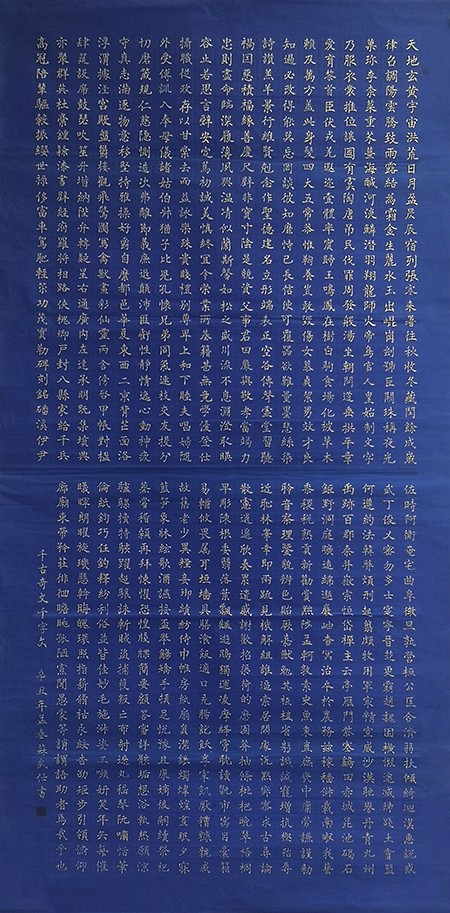 天地玄黃宇宙洪荒日月盈昃辰宿列張寒來暑往秋收冬藏閏餘成歲
律呂調陽雲騰致雨露結為霜金生麗水玉出崑岡劍號巨闕珠稱夜光
菓珍李柰菜重芥薑海鹹河淡鱗潛羽翔龍師火帝鳥官人皇始制文字
乃服衣裳推位讓國有虞陶唐弔民伐罪周發殷湯坐朝問道垂拱平章
愛育黎首臣伏戎羌遐邇壹體率賓歸王鳴鳳在樹白駒食場化被草木
賴及萬方蓋此身髮四大五常恭惟鞠養豈敢毀傷女慕貞絜男效才良
知過必改得能莫忘罔談彼短靡恃己長信使可覆器欲難量墨悲絲染
詩讚羔羊景行維賢克念作聖德建名立形端表正空谷傳聲虛堂習聽
禍因惡積福緣善慶尺璧非寶寸陰是競資父事君曰嚴與敬孝當竭力
忠則盡命臨深履薄夙興溫凊似蘭斯馨如松之盛川流不息淵澄取暎
容止若思言辭安定篤初誠美慎終宜令榮業所基籍甚無竟學優登仕
攝職從政存以甘棠去而益詠樂殊貴賤禮別尊卑上和下睦夫唱婦隨
外受傅訓入奉母儀諸姑伯叔猶子比兒孔懷兄弟同氣連枝交友投分
切磨箴規仁慈隱惻造次弗離節義廉退顛沛匪虧性靜情逸心動神疲
守真志滿逐物意移堅持雅操好爵自縻都邑華夏東西二京背芒面洛
浮渭據涇宮殿盤鬱樓觀飛驚圖寫禽獸畫彩仙靈丙舍傍啟甲帳對楹
肆筵設席鼓瑟吹笙升階納陛弁轉疑星右通廣內左達承明既集墳典
亦聚群英杜稾鍾隸漆書壁經府羅將相路俠槐卿戶封八縣家給千兵
高冠陪輦驅轂振纓世祿侈富車駕肥輕策功茂實勒碑刻銘磻溪伊尹
佐時阿衡奄宅曲阜微旦孰營桓公匡合濟弱扶傾綺迴漢惠說感
武丁俊乂密勿多士寔寧晉楚更霸趙魏困橫假途滅虢踐土會盟
何遵約法韓弊煩刑起翦頗牧用軍最精宣威沙漠馳譽丹青九州
禹跡百郡秦并嶽宗恒岱禪主云亭雁門紫塞雞田赤城昆池碣石
鉅野洞庭曠遠緜邈巖岫杳冥治本於農務茲稼穡俶載南畝我藝
黍稷稅熟貢新勸賞黜陟孟軻敦素史魚秉直庶幾中庸勞謙謹敕
聆音察理鑑貌辨色貽厥嘉猷勉其祗植省躬譏誡寵增抗極殆辱
近恥林皋幸即兩疏見機解組誰逼索居閒處沉默寂寥求古尋論
散慮逍遙欣奏累遣慼謝歡招渠荷的歷園莽抽條枇杷晚翠梧桐
早凋陳根委翳落葉飄颻遊鵾獨運凌摩絳霄耽讀翫市寓目囊箱
易輶攸畏屬耳垣牆具膳飡飯適口充腸飽飫烹宰飢厭糟糠親戚
故舊老少異糧妾御績紡侍巾帷房紈扇圓潔銀燭煒煌晝眠夕寐
藍筍象床絃歌酒讌接杯舉觴矯手頓足悅豫且康嫡後嗣續祭祀
蒸嘗稽顙再拜悚懼恐惶牋牒簡要顧答審詳骸垢想浴執熱願涼
驢騾犢特駭躍超驤誅斬賊盜捕獲叛亡布射遼丸嵇琴阮嘯恬筆
倫紙鈞巧任釣釋紛利俗並皆佳妙毛施淑姿工顰妍笑年矢每催
曦暉朗曜璇璣懸斡晦魄環照指薪脩祜永綏吉劭矩步引領俯仰
廊廟束帶矜莊徘徊瞻眺孤陋寡聞愚蒙等誚謂語助者焉哉乎也
千古奇文千字文 辛丑年孟春蘇仕書